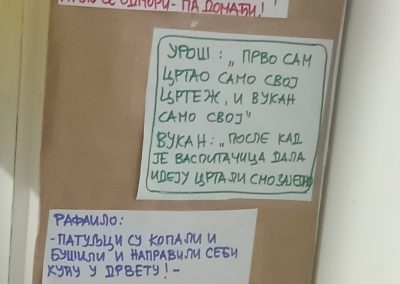 СЕ ОДМОРИ - ПА ДОМАЋИ!
УРОШ: „ ПРВО САМ
ЦРТАО САМО СВОЈ
ЦРТЕЖ, И ВУКАН
САМО СВОЈ"
ВУКАН: „ПОСЛЕ КАД
ЈЕ ВАСПИТАЧИЦА ДАЛА
ИДЕЈУ ЦРТАЛИ СМО ЗАЈЕДНО
РАФАИЛО:
-ПАТУЉЦИ СУ КОПАЛИ И
БУШИЛИ И НАПРАВИЛИ СЕБИ
КУЋУ У ДРВЕТУ!-